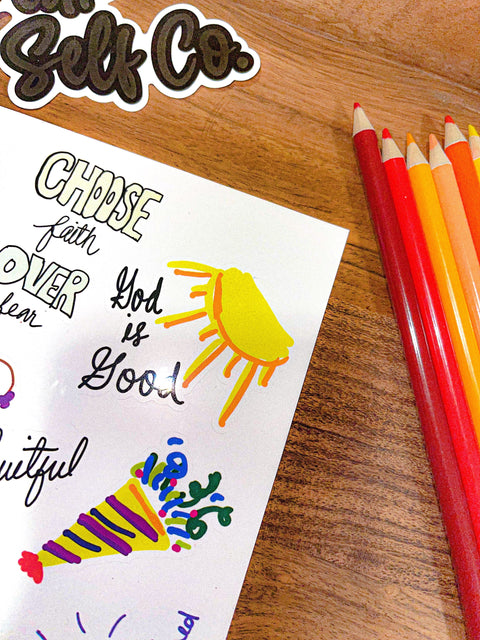 Self Co.
CHOOSE
faith
OVER
fear
God
is
Good